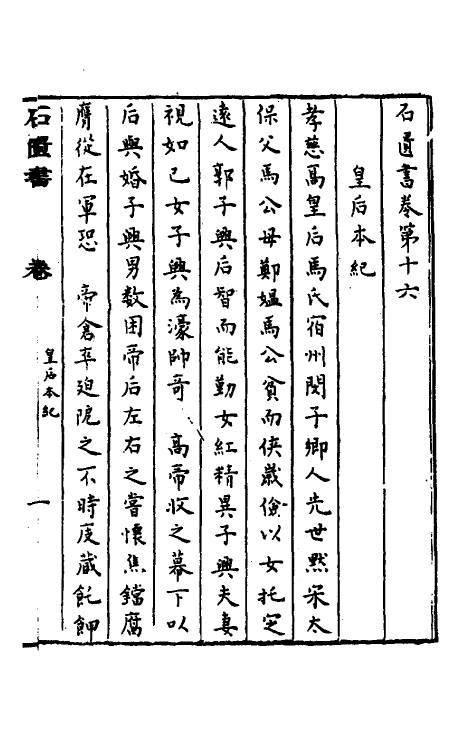 石匱書卷第十六
皇后本紀
孝慈高皇后馬氏宿州閔子鄉人先世黙宋太
保父馬公母鄭媼馬公貧而俠歲儉以女托定
遠人郭子興后智而能勤女紅精異子興夫妻
視如己女子興為濠帥奇 高帝收之幕下以
后與婚子興男數困帝后左右之嘗懷焦鐺腐
膺從在軍恐 帝倉卒迫阨之不時庋藏飥餌
石匱書 卷 皇后本紀 一